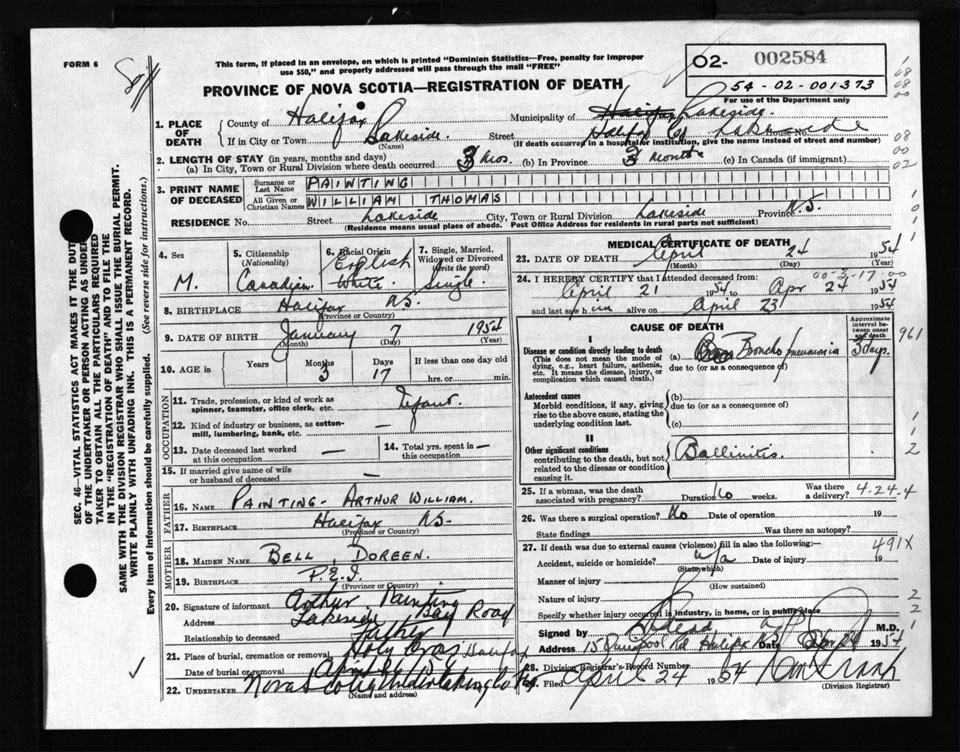 FORM 6
This form, if placed in an envelope, on which is printed "Dominion Statistics—Free, penalty for improper
use $50," and properly addressed will pass through the mail "FREE"
PROVINCE OF NOVA SCOTIA—REGISTRATION OF DEATH
002584
O2-
54-02-001373
For use of the Department only
1. PLACE OF DEATH
County of Halifax Municipality of Halifax Lakeside.
If in City or Town Lakeside. Street Halifax Co Lakeside House No.
(Name) (If death occurred in a hospital or institution, give the name instead of street and number)
2. LENGTH OF STAY (in years, months and days)
(a) In City, Town or Rural Division where death occurred 3 Mos. (b) In Province 3 Months (c) In Canada (if immigrant)
3. PRINT NAME OF DECEASED
Surname or Last Name PAINTING
All Given or Christian Names WILLIAM THOMAS
RESIDENCE No. Street Lakeside City, Town or Rural Division Lakeside Province N.S.
(Residence means usual place of abode. Post Office Address for residents in rural parts not sufficient)
4. Sex M.
5. Citizenship (Nationality) Canadian.
6. Racial Origin English White.
7. Single, Married, Widowed or Divorced (write the word) Single.
8. BIRTHPLACE Halifax N.S.
(Province or Country)
9. DATE OF BIRTH January 7 1954
(Month) (Day) (Year)
10. AGE in Years Months 3 Days 17 If less than one day old hrs. or min.
OCCUPATION
11. Trade, profession, or kind of work as spinner, teamster, office clerk, etc. Infant.
12. Kind of industry or business, as cotton-mill, lumbering, bank, etc. —
13. Date deceased last worked at this occupation —
14. Total yrs. spent in this occupation —
15. If married give name of wife or husband of deceased —
FATHER
16. NAME PAINTING - ARTHUR WILLIAM.
17. BIRTHPLACE Halifax N.S.
(Province or Country)
MOTHER
18. MAIDEN NAME BELL DOREEN.
19. BIRTHPLACE P.E.I.
(Province or Country)
20. Signature of informant Arthur Painting
Address Lakeside Bay Road
Relationship to deceased Father
21. Place of burial, cremation or removal Holy Cross Halifax
Date of burial or removal April 26
22. UNDERTAKER Nova Scotia Undertaking Co
(Name and address)
MEDICAL CERTIFICATE OF DEATH
23. DATE OF DEATH April 24 1954
(Month) (Day) (Year)
00-3-17-00
24. I HEREBY CERTIFY that I attended deceased from:
April 21 1954 to Apr 24 1954
and last saw h im alive on April 23 1954
CAUSE OF DEATH
Approximate interval between onset and death
961
I
Disease or condition directly leading to death (a) Broncho pneumonia 3 days.
(This does not mean the mode of dying, e.g., heart failure, asthenia, etc. It means the disease, injury, or complication which caused death.)
due to (or as a consequence of)
Antecedent causes (b)
Morbid conditions, if any, giving rise to the above cause, stating the underlying condition last.
due to (or as a consequence of)
(c)
II
Other significant conditions
contributing to the death, but not related to the disease or condition causing it.
25. If a woman, was the death associated with pregnancy? Duration No weeks. Was there a delivery? 4-24-4
26. Was there a surgical operation? No Date of operation 19
State findings Was there an autopsy?
27. If death was due to external causes (violence) fill in also the following:— 491X
Accident, suicide or homicide? n/a Date of injury 19
(State which)
Manner of injury
(How sustained)
Nature of injury
Specify whether injury occurred in industry, in home, or in public place
Signed by M.D.
Address 15 Halifax N.S. Date Apr 24 1954
28. Division Registrar's Record Number
29. Filed April 24 1954
(Division Registrar)
SEC. 46—VITAL STATISTICS ACT MAKES IT THE DUTY
OF THE UNDERTAKER OR PERSON ACTING AS UNDER-
TAKER TO OBTAIN ALL THE PARTICULARS REQUIRED
IN THE "REGISTRATION OF DEATH" AND TO FILE THE
SAME WITH THE DIVISION REGISTRAR WHO SHALL ISSUE THE BURIAL PERMIT.
WRITE PLAINLY WITH UNFADING INK. THIS IS A PERMANENT RECORD.
Every item of information should be carefully supplied. (See reverse side for instructions.)